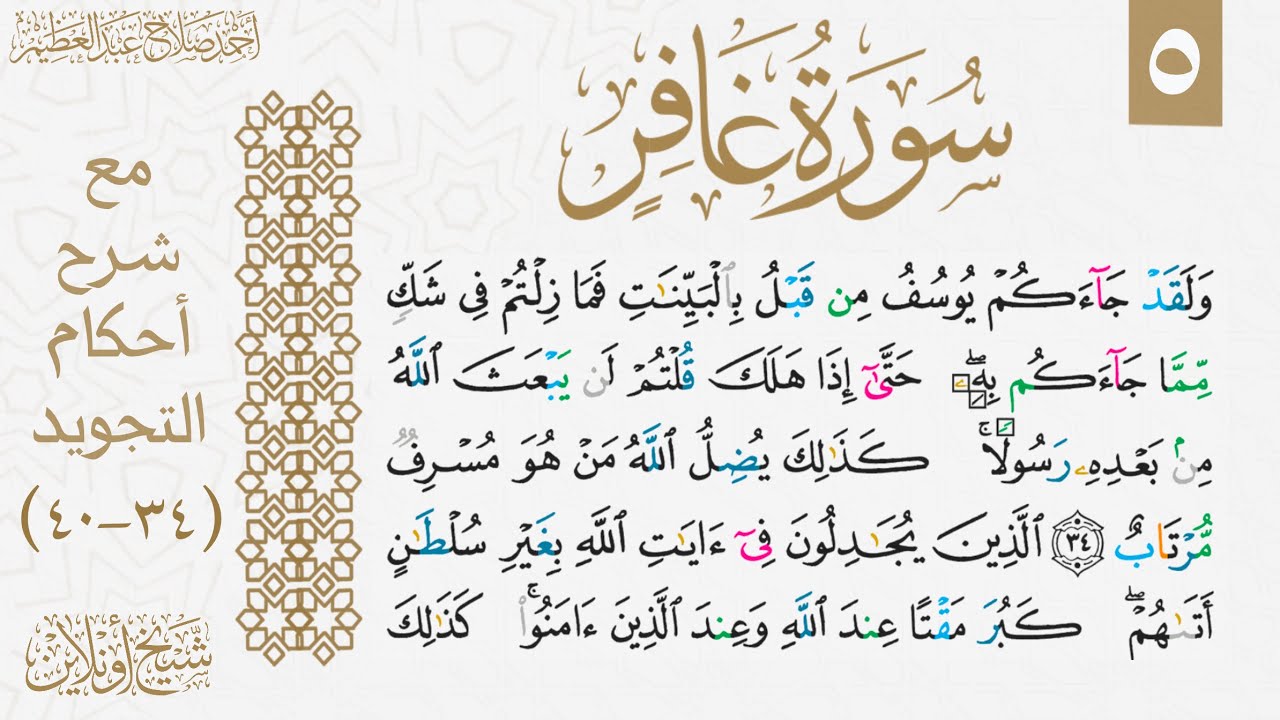 ٥
سُورَةُ غَافِرٍ
أحمد صلاح عبد العظيم
مع
شرح
أحكام
التجويد
(٣٤-٤٠)
وَلَقَدْ جَآءَكُمْ يُوسُفُ مِن قَبْلُ بِٱلْبَيِّنَٰتِ فَمَا زِلْتُمْ فِى شَكٍّ
مِّمَّا جَآءَكُم بِهِۦۖ حَتَّىٰٓ إِذَا هَلَكَ قُلْتُمْ لَن يَبْعَثَ ٱللَّهُ
مِنۢ بَعْدِهِۦ رَسُولًاۚ كَذَٰلِكَ يُضِلُّ ٱللَّهُ مَنْ هُوَ مُسْرِفٌ
مُّرْتَابٌ ٣٤ ٱلَّذِينَ يُجَٰدِلُونَ فِىٓ ءَايَٰتِ ٱللَّهِ بِغَيْرِ سُلْطَٰنٍ
أَتَىٰهُمْۖ كَبُرَ مَقْتًا عِندَ ٱللَّهِ وَعِندَ ٱلَّذِينَ ءَامَنُوا۟ۚ كَذَٰلِكَ
شيخ أونلاين